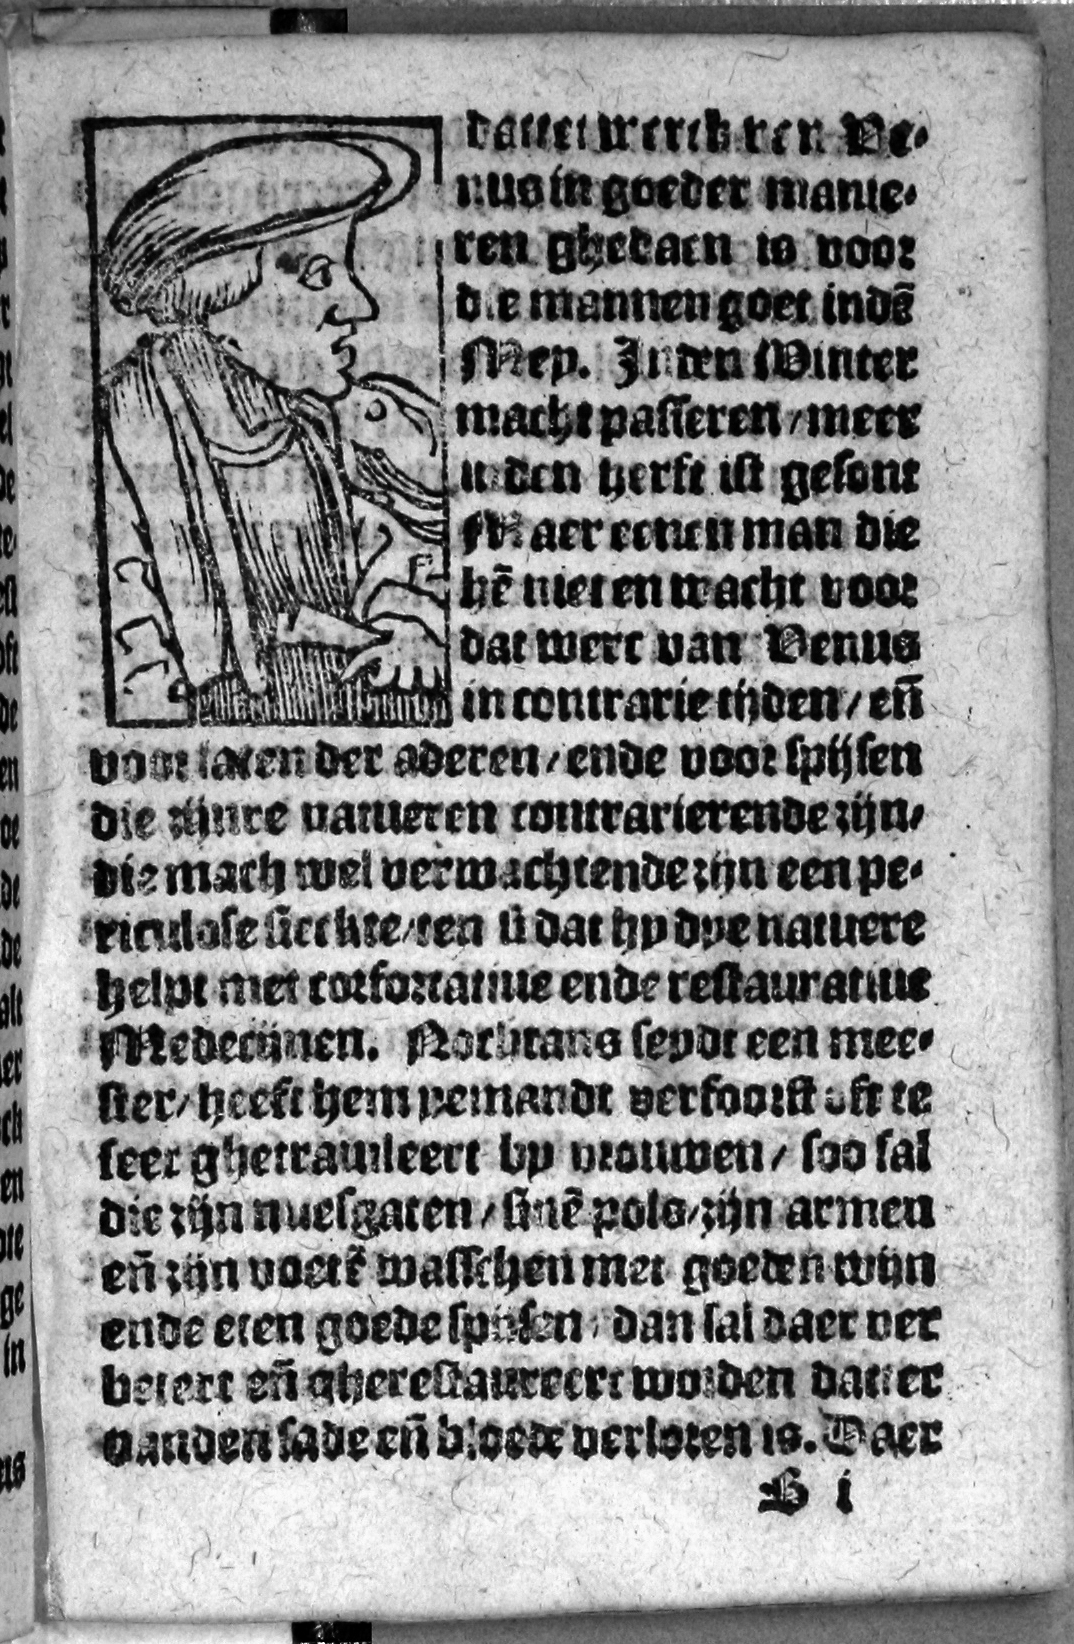 dattet werck ven Ve-
nus in goeder manie-
ren ghedaen is voor
die mannen goet indē
Mey. In den Winter
macht passeren / meer
inden herfst ist gesont
Maer eenen man die
hē niet en wacht voor
dat werc van Venus
in contrarie tijden / eñ
voor laten der aderen / ende voor spijsen
die zijnre natueren contrarierende zijn /
die mach wel verwachtende zijn een pe-
riculose sieckte / ten si dat hy dye natuere
helpt met confortatiue ende restauratiue
Medecijnen. Nochtans seydt een mee-
ster / heeft hem yemandt verkoorst oft te
seer ghetrauileert by vrouwen / soo sal
die zijn nuesgaten / sinē pols / zijn armen
eñ zijn voetē wasschen met goeden wijn
ende eten goede spijsen / dan sal daer ver
betert eñ gherestaureert worden datter
vanden sade eñ bloede verloren is. Daer
B i